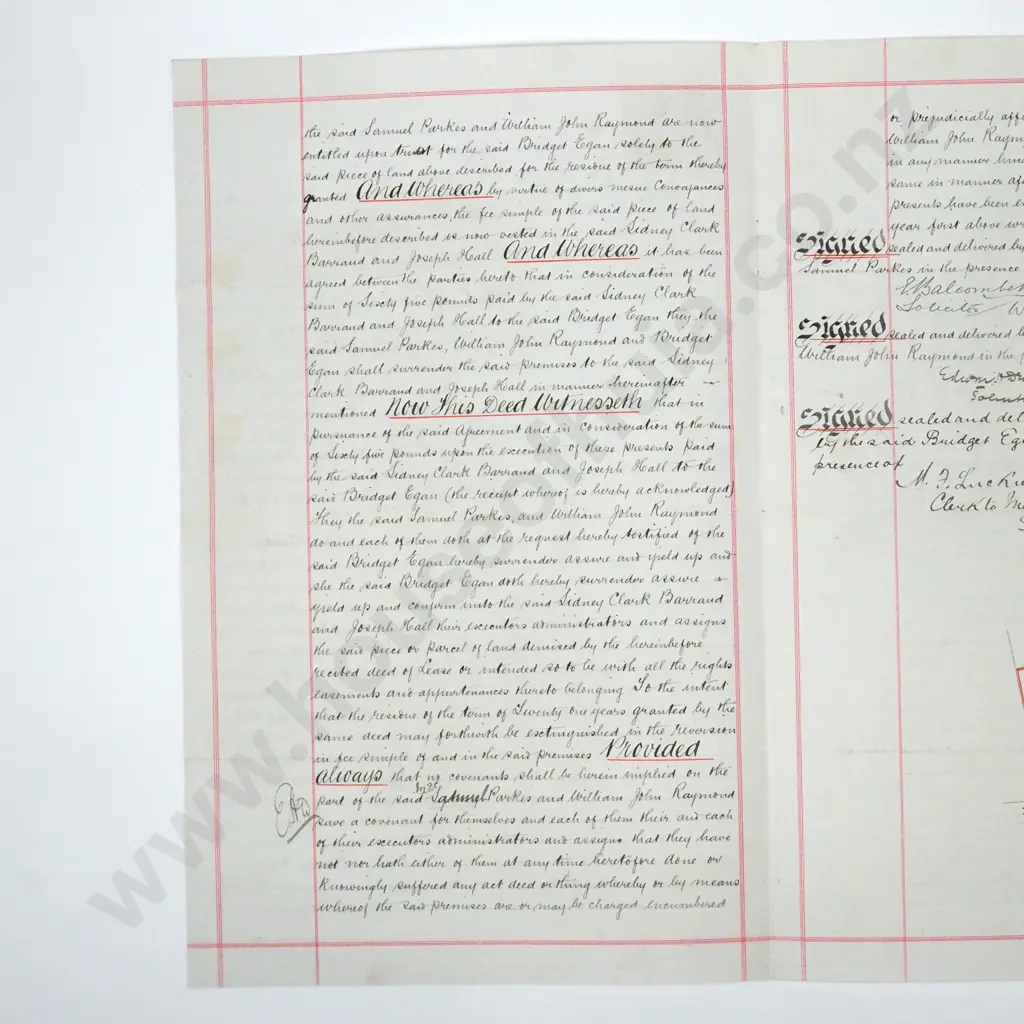 the said Samuel Parkes and William John Raymond are now
entitled upon trust for the said Bridget Egan solely to the
said piece of land above described for the residue of the term thereby
granted And Whereas by virtue of divers mesne Conveyances
and other assurances, the fee simple of the said piece of land
hereinbefore described is now vested in the said Sidney Clark
Barraud and Joseph Hall And Whereas it has been
agreed between the parties hereto that in consideration of the
sum of Sixty five pounds paid by the said Sidney Clark
Barraud and Joseph Hall to the said Bridget Egan they the
said Samuel Parkes, William John Raymond and Bridget
Egan shall surrender the said premises to the said Sidney
Clark Barraud and Joseph Hall in manner hereinafter
mentioned Now This Deed Witnesseth that in
pursuance of the said Agreement and in consideration of the sum
of Sixty five pounds upon the execution of these presents paid
by the said Sidney Clark Barraud and Joseph Hall to the
said Bridget Egan (the receipt whereof is hereby acknowledged)
They the said Samuel Parkes, and William John Raymond
do and each of them doth at the request hereby testified of the
said Bridget Egan hereby surrender assure and yield up and
she the said Bridget Egan doth hereby surrender assure
yield up and confirm unto the said Sidney Clark Barraud
and Joseph Hall their executors administrators and assigns
the said piece or parcel of land demised by the hereinbefore
recited deed of Lease or intended so to be with all the rights
easements and appurtenances thereto belonging To the intent
that the residue of the term of Twenty one years granted by the
same deed may forthwith be extinguished in the reversion
in fee simple of and in the said premises Provided
always that no covenants shall be herein implied on the
part of the said Samuel Parkes and William John Raymond
save a covenant for themselves and each of them their and each
of their executors administrators and assigns that they have
not nor hath either of them at any time heretofore done or
knowingly suffered any act deed or thing whereby or by means
whereof the said premises are or may be charged encumbered
or prejudicially affe
William John Raym
in any manner hind
same in manner af
presents have been e
year first above wr
Signed sealed and delivered by
Samuel Parkes in the presence
Solicitor
Signed sealed and delivered b
William John Raymond in the p
Signed sealed and del
by the said Bridget Eg
presence of
M. F. Luckie
Clerk to Me